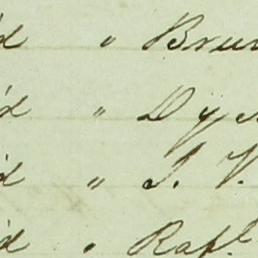 d " Bru
d " Dy
d " J. V.
d " Rapl